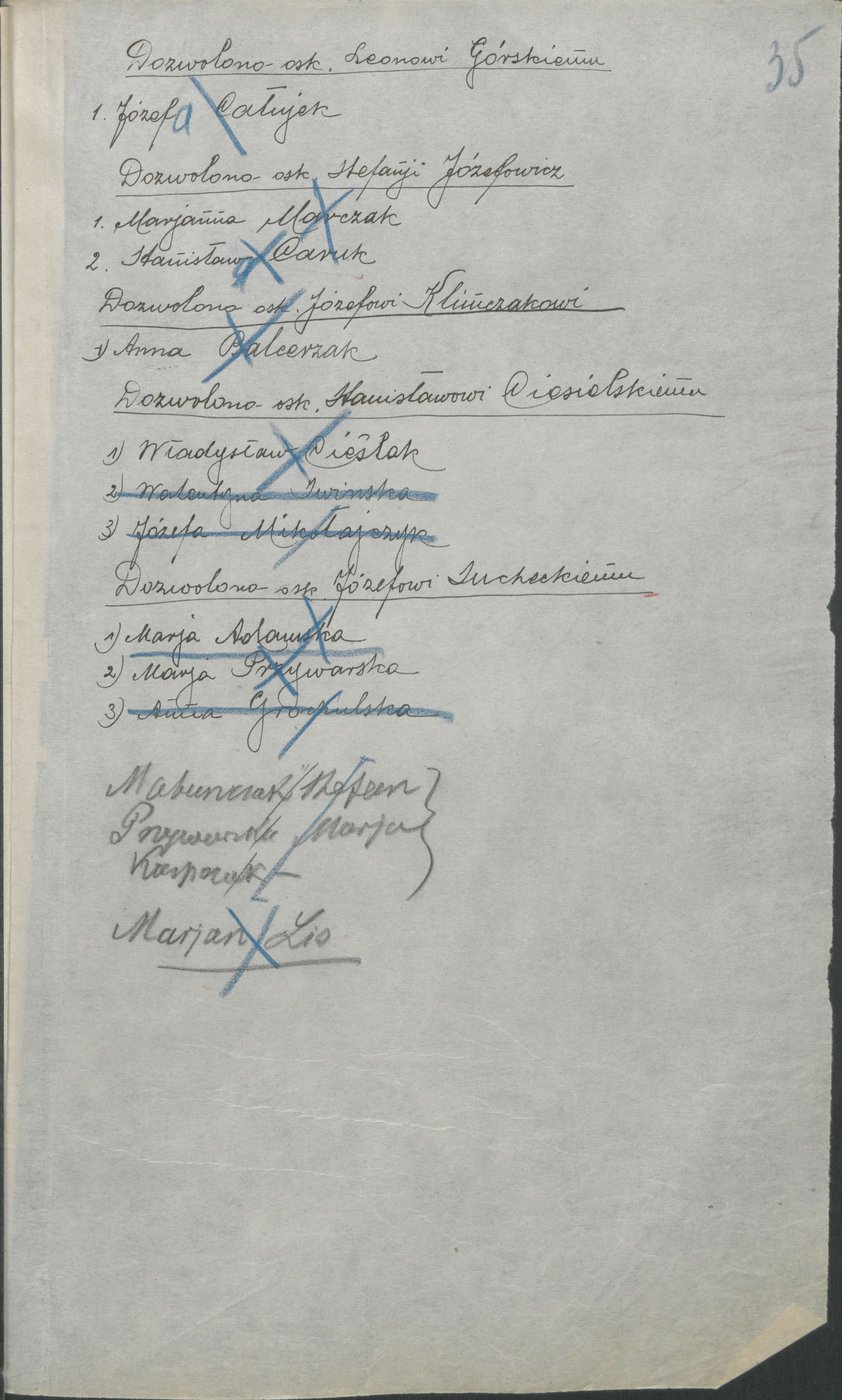 35
Dozwolono osk. Leonowi Górskiemu
1. Józefa Całujek
Dozwolono osk. Stefanji Józefowicz
1. Marjanna Marczak
2. Stanisława Caruk
Dozwolono osk. Józefowi Klimczakowi
1) Anna Balcerzak
Dozwolono osk. Stanisławowi Ciesielskiemu
1) Władysław Cieślak
2) Walentyna Iwińska
3) Józefa Mikołajczyk
Dozwolono osk. Józefowi Sucheckiemu
1) Marja Adamska
2) Marja Przywarska
3) Anna Grochulska
Stefan
Przywarska Marja
Kacprzak
Marjan Lis